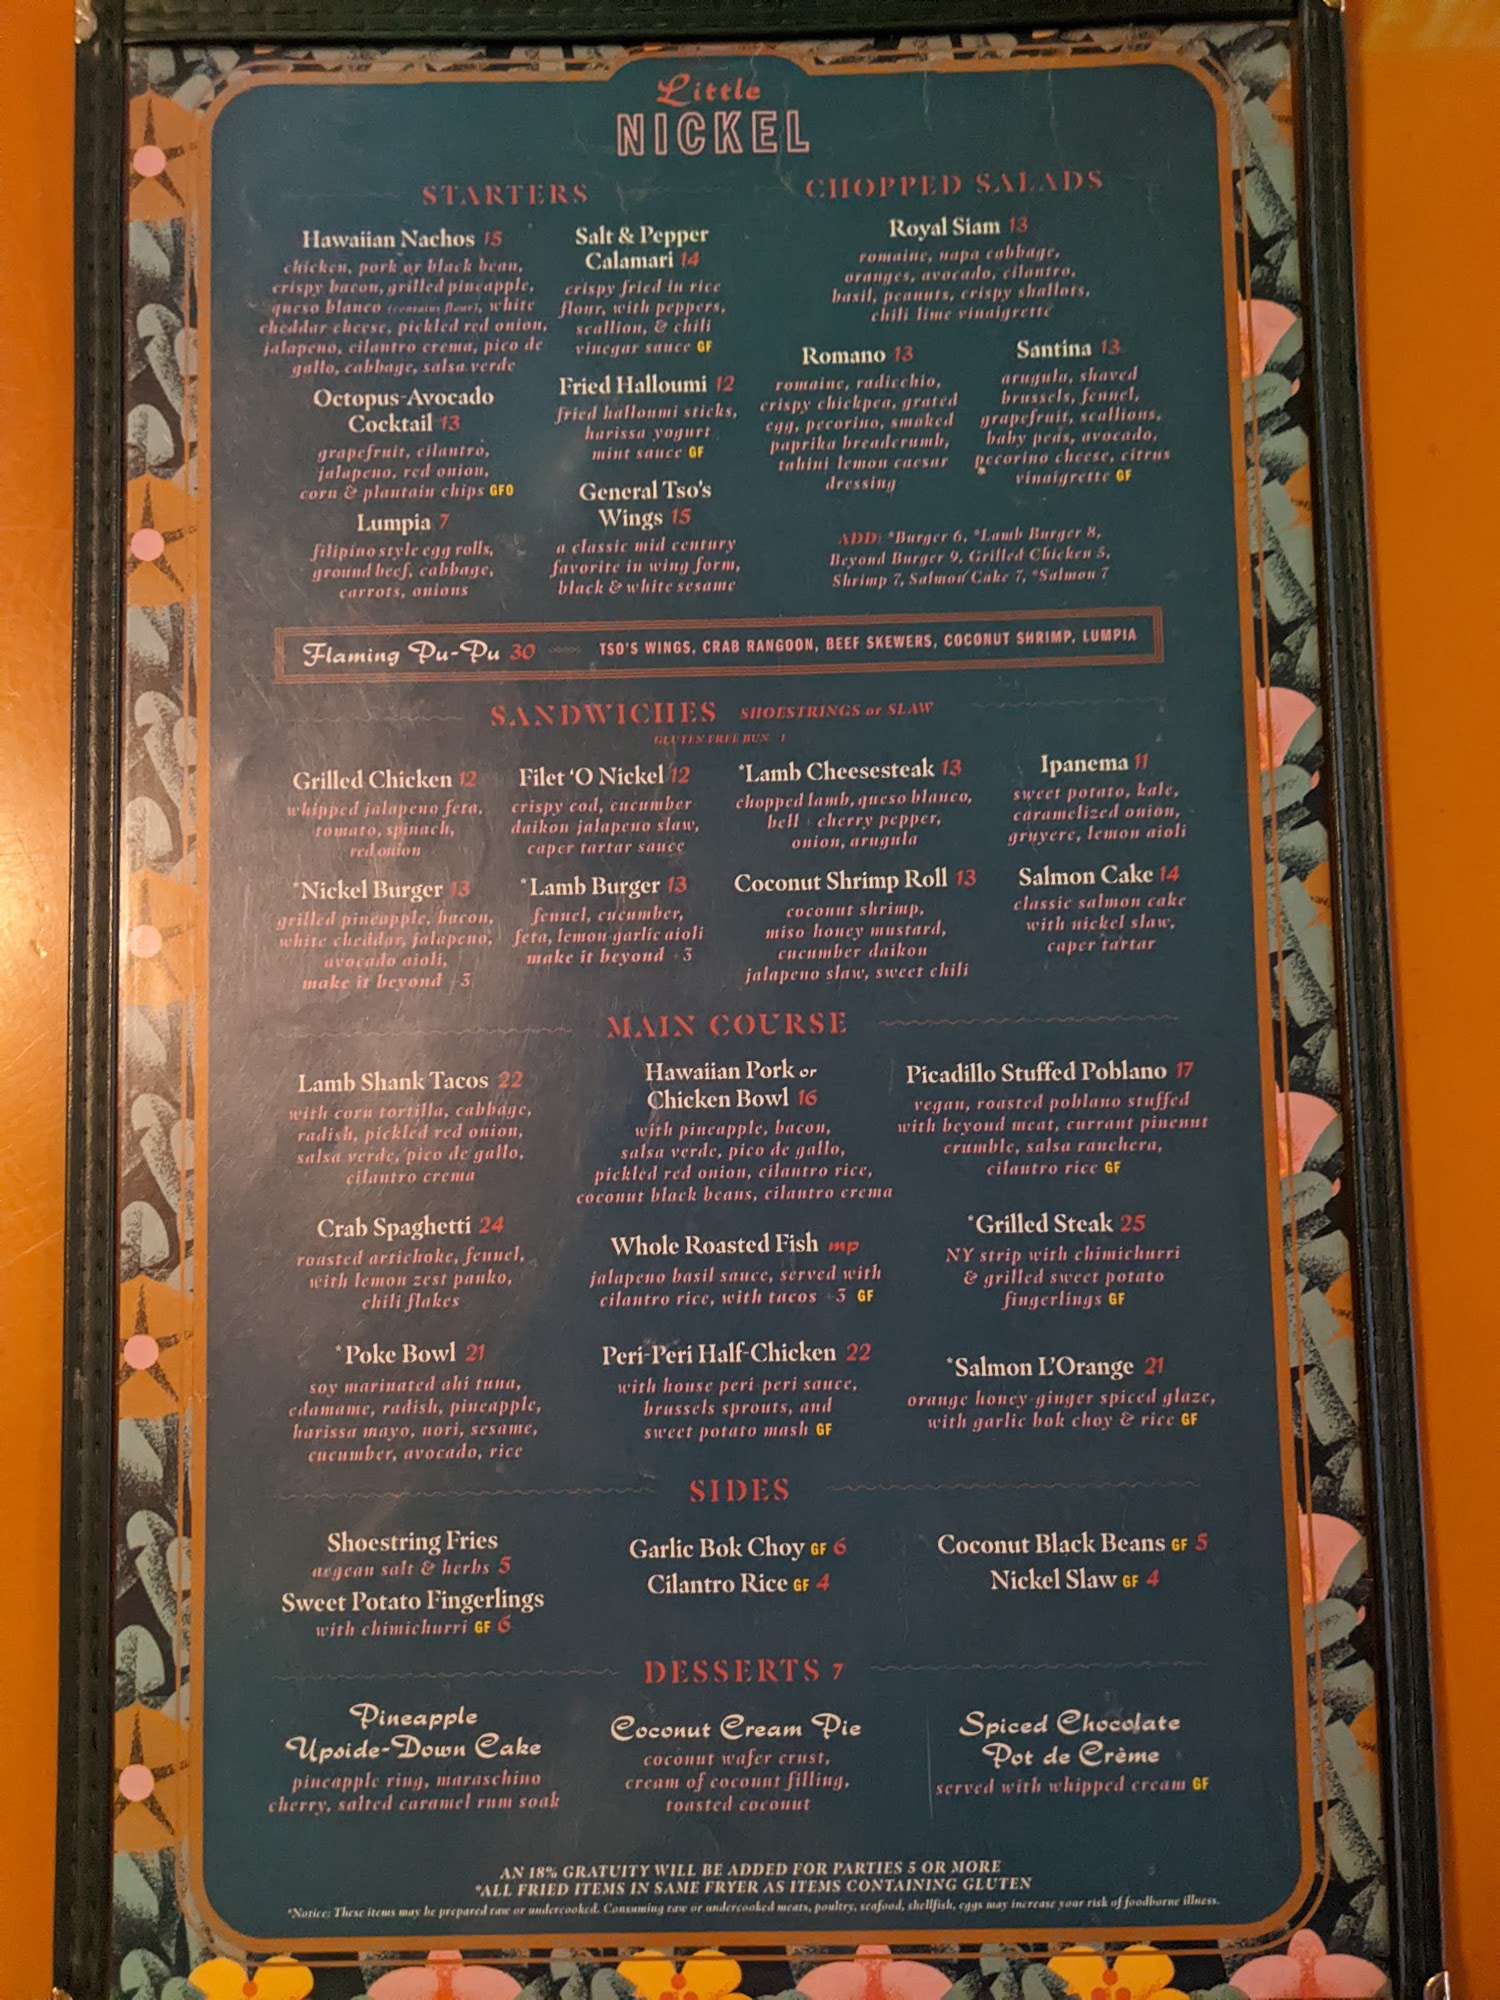 Little
NICKEL
STARTERS
Hawaiian Nachos 15
chicken, pork or black bean,
crispy bacon, grilled pineapple,
queso blanco (contains flour), white
cheddar cheese, pickled red onion,
jalapeno, cilantro crema, pico de
gallo, cabbage, salsa verde
Octopus-Avocado
Cocktail 13
grapefruit, cilantro,
jalapeno, red onion,
corn & plantain chips GFO
Lumpia 7
filipino style egg rolls,
ground beef, cabbage,
carrots, onions
Salt & Pepper
Calamari 14
crispy fried in rice
flour, with peppers,
scallion, & chili
vinegar sauce GF
Fried Halloumi 12
fried halloumi sticks,
harissa yogurt
mint sauce GF
General Tso's
Wings 15
a classic mid century
favorite in wing form,
black & white sesame
CHOPPED SALADS
Royal Siam 13
romaine, napa cabbage,
oranges, avocado, cilantro,
basil, peanuts, crispy shallots,
chili lime vinaigrette
Romano 13
romaine, radicchio,
crispy chickpea, grated
egg, pecorino, smoked
paprika breadcrumb,
tahini lemon caesar
dressing
Santina 13
arugula, shaved
brussels, fennel,
grapefruit, scallions,
baby peas, avocado,
pecorino cheese, citrus
vinaigrette GF
ADD: *Burger 6, *Lamb Burger 8,
Beyond Burger 9, Grilled Chicken 5,
Shrimp 7, Salmon Cake 7, *Salmon 7
Flaming Pu-Pu 30 TSO'S WINGS, CRAB RANGOON, BEEF SKEWERS, COCONUT SHRIMP, LUMPIA
SANDWICHES SHOESTRINGS or SLAW
GLUTEN FREE BUN +1
Grilled Chicken 12
whipped jalapeno feta,
tomato, spinach,
red onion
Filet 'O Nickel 12
crispy cod, cucumber
daikon jalapeno slaw,
caper tartar sauce
*Lamb Cheesesteak 13
chopped lamb, queso blanco,
bell + cherry pepper,
onion, arugula
Ipanema 11
sweet potato, kale,
caramelized onion,
gruyere, lemon aioli
*Nickel Burger 13
grilled pineapple, bacon,
white cheddar, jalapeno,
avocado aioli,
make it beyond +3
*Lamb Burger 13
fennel, cucumber,
feta, lemon-garlic aioli
make it beyond +3
Coconut Shrimp Roll 13
coconut shrimp,
miso honey mustard,
cucumber daikon
jalapeno slaw, sweet chili
Salmon Cake 14
classic salmon cake
with nickel slaw,
caper tartar
MAIN COURSE
Lamb Shank Tacos 22
with corn tortilla, cabbage,
radish, pickled red onion,
salsa verde, pico de gallo,
cilantro crema
Hawaiian Pork or
Chicken Bowl 16
with pineapple, bacon,
salsa verde, pico de gallo,
pickled red onion, cilantro rice,
coconut black beans, cilantro crema
Picadillo Stuffed Poblano 17
vegan, roasted poblano stuffed
with beyond meat, currant pinenut
crumble, salsa ranchera,
cilantro rice GF
Crab Spaghetti 24
roasted artichoke, fennel,
with lemon zest panko,
chili flakes
Whole Roasted Fish mp
jalapeno basil sauce, served with
cilantro rice, with tacos +3 GF
*Grilled Steak 25
NY strip with chimichurri
& grilled sweet potato
fingerlings GF
*Poke Bowl 21
soy marinated ahi tuna,
edamame, radish, pineapple,
harissa mayo, nori, sesame,
cucumber, avocado, rice
Peri-Peri Half-Chicken 22
with house peri-peri sauce,
brussels sprouts, and
sweet potato mash GF
*Salmon L'Orange 21
orange honey-ginger spiced glaze,
with garlic bok choy & rice GF
SIDES
Shoestring Fries
aegean salt & herbs 5
Sweet Potato Fingerlings
with chimichurri GF 6
Garlic Bok Choy GF 6
Cilantro Rice GF 4
Coconut Black Beans GF 5
Nickel Slaw GF 4
DESSERTS 7
Pineapple
Upside-Down Cake
pineapple ring, maraschino
cherry, salted caramel rum soak
Coconut Cream Pie
coconut wafer crust,
cream of coconut filling,
toasted coconut
Spiced Chocolate
Pot de Crème
served with whipped cream GF
AN 18% GRATUITY WILL BE ADDED FOR PARTIES 5 OR MORE
*ALL FRIED ITEMS IN SAME FRYER AS ITEMS CONTAINING GLUTEN
*Notice: These items may be prepared raw or undercooked. Consuming raw or undercooked meats, poultry, seafood, shellfish, eggs may increase your risk of foodborne illness.